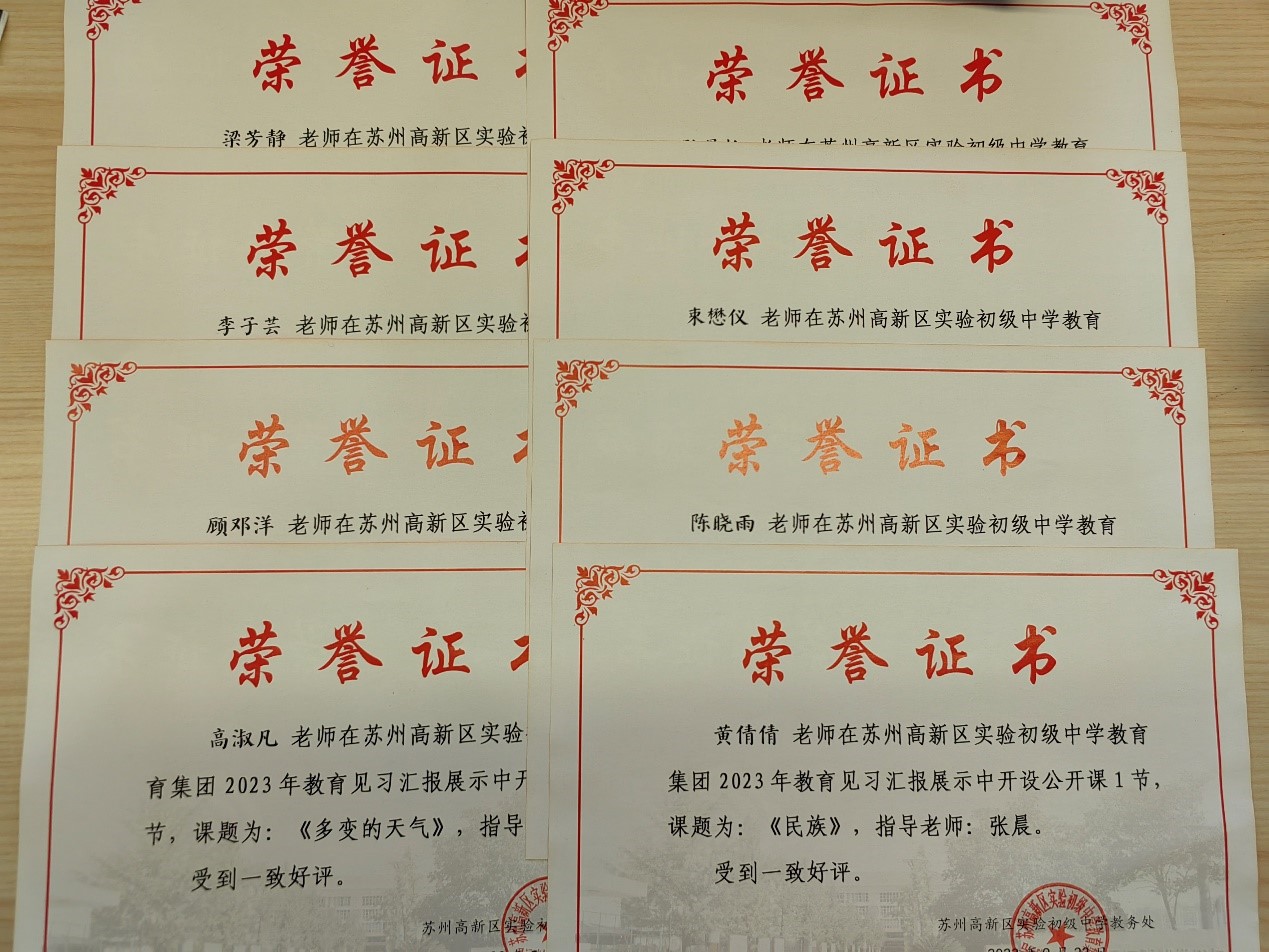 荣誉证
梁芳静 老师在苏州高新区实验
荣誉证书
老师在苏州高新区实验初级中学教育
荣誉证
李子芸 老师在苏州高新区实验
荣誉证书
束懋仪 老师在苏州高新区实验初级中学教育
荣誉证
顾邓洋 老师在苏州高新区实验
荣誉证书
陈晓雨 老师在苏州高新区实验初级中学教育
荣誉证
高淑凡 老师在苏州高新区实验
育集团 2023 年教育见习汇报展示中开
节，课题为：《多变的天气》，指导
受到一致好评。
苏州高新区实验
荣誉证书
黄倩倩 老师在苏州高新区实验初级中学教育
集团 2023 年教育见习汇报展示中开设公开课 1 节，
课题为：《民族》，指导老师：张晨。
受到一致好评。
苏州高新区实验初级中学教务处